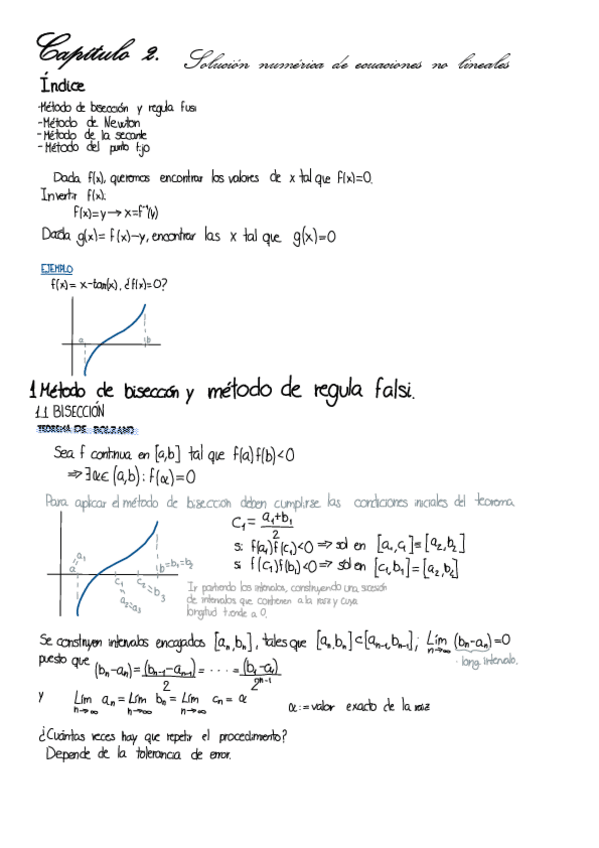 Capítulo 2. Solución numérica de ecuaciones no lineales
Índice
-Método de bisección y regula fusi
-Método de Newton
-Método de la secante
-Método del punto fijo
Dada f(x), queremos encontrar los valores de x tal que f(x)=0.
Invertir f(x):
f(x)=y→x=f⁻¹(y)
Dada g(x)=f(x)-y, encontrar las x tal que g(x)=0
EJEMPLO
f(x)= x-tan(x), ¿f(x)=0?
a b
1 Método de bisección y método de regula falsi.
1.1 BISECCIÓN
TEOREMA DE BOLZANO
Sea f continua en [a,b] tal que f(a)f(b)<0
⇒∃α∈(a,b): f(α)=0
Para aplicar el método de bisección deben cumplirse las condiciones iniciales del teorema.
C₁= (a₁+b₁)/2
si f(a₁)f(c₁)<0 ⇒ sol en [a₁,c₁]≡[a₂,b₂]
si f(c₁)f(b₁)<0 ⇒ sol en [c₁,b₁]=[a₂,b₂]
a=a₁ b=b₁=b₂
c₁=a₂=a₃ c₂=b₃
Ir partiendo los intervalos, construyendo una sucesión
de intervalos que contienen a la raíz y cuya
longitud tiende a 0.
Se construyen intervalos encajados [aₙ,bₙ], tales que [aₙ,bₙ]⊂[aₙ₋₁,bₙ₋₁]; Lím n→∞ (bₙ-aₙ)=0
long. intervalo.
puesto que (bₙ-aₙ)=(bₙ₋₁-aₙ₋₁)/2=....=(b₁-a₁)/2ⁿ⁻¹
y Lím n→∞ aₙ = Lím n→∞ bₙ = Lím n→∞ cₙ = α
α:=valor exacto de la raíz
¿Cuántas veces hay que repetir el procedimiento?
Depende de la tolerancia de error.